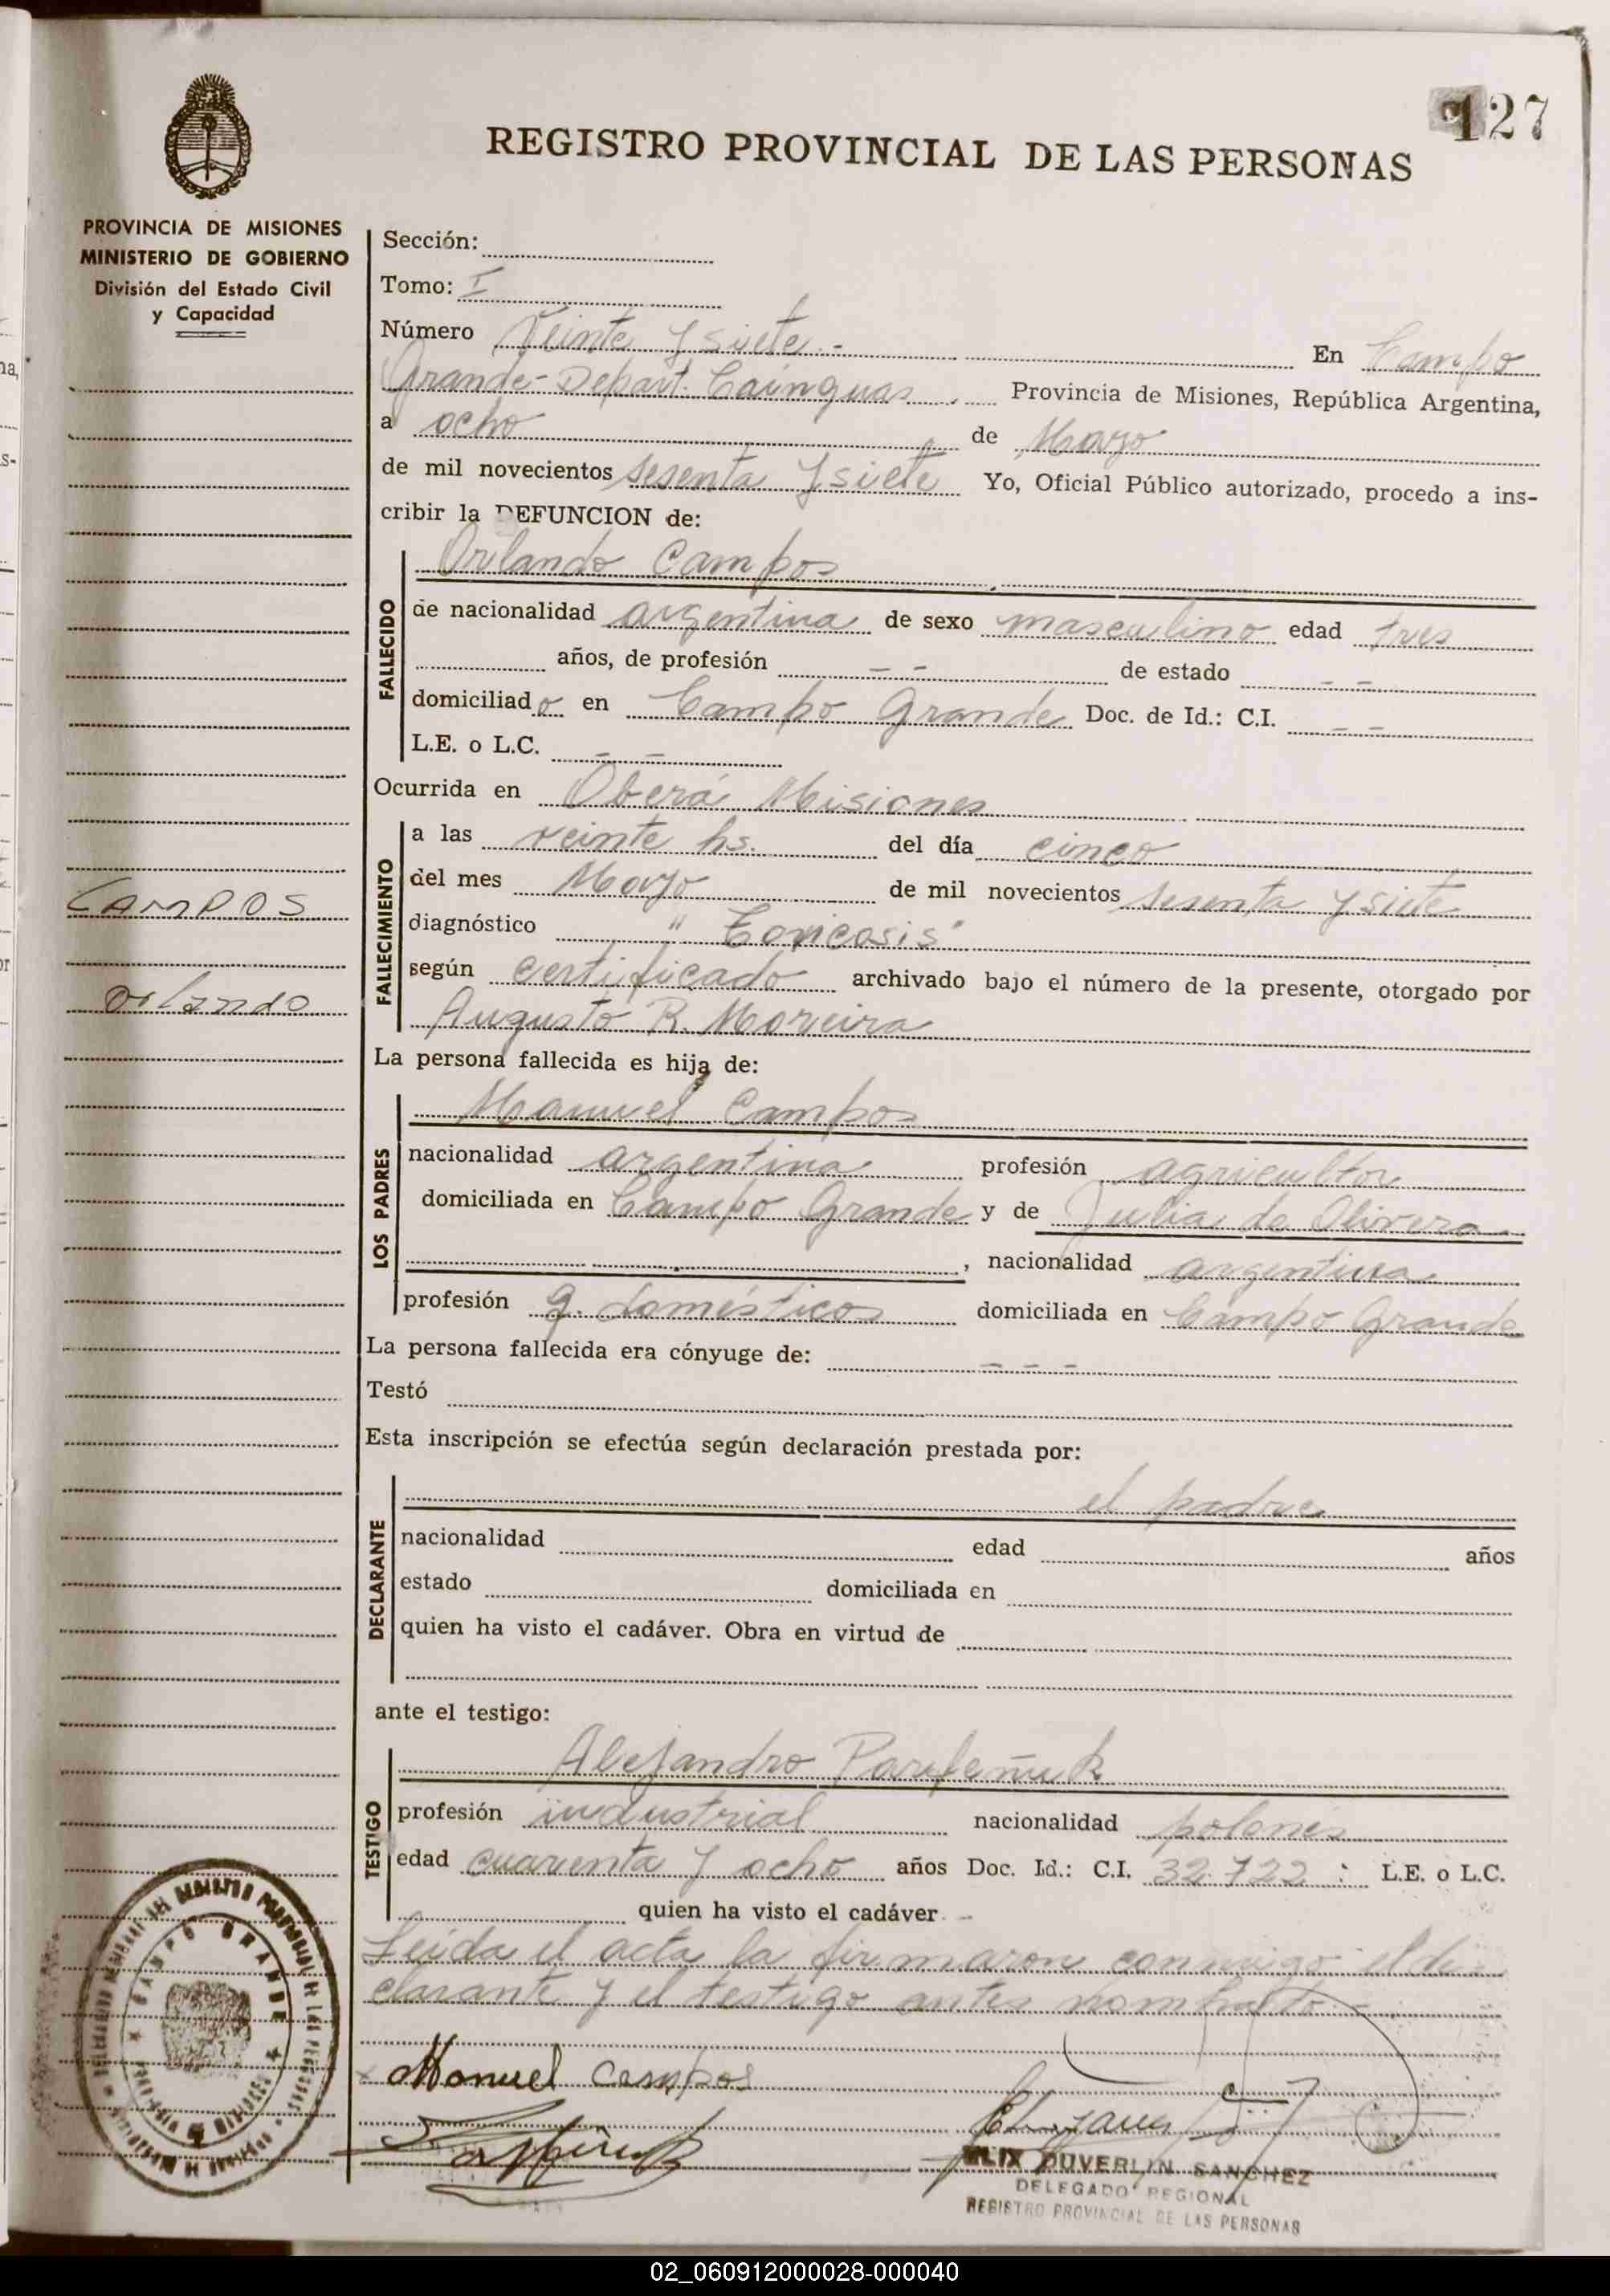 127
REGISTRO PROVINCIAL DE LAS PERSONAS
PROVINCIA DE MISIONES
MINISTERIO DE GOBIERNO
División del Estado Civil
y Capacidad
Sección:
Tomo: I
Número Veinte y siete.- En Campo
Grande- Depart. Cainguas Provincia de Misiones, República Argentina,
a ocho de Mayo
de mil novecientos sesenta y siete Yo, Oficial Público autorizado, procedo a ins-
cribir la DEFUNCION de:
Orlando Campos
FALLECIDO
de nacionalidad argentina de sexo masculino edad tres
años, de profesión - - de estado - -
domiciliado en Campo Grande Doc. de Id.: C.I. - -
L.E. o L.C. - -
Ocurrida en Oberá Misiones
FALLECIMIENTO
a las veinte hs. del día cinco
del mes Mayo de mil novecientos sesenta y siete
diagnóstico
según certificado archivado bajo el número de la presente, otorgado por
Augusto R. Moreira
CAMPOS
Orlando
La persona fallecida es hija de:
LOS PADRES
Manuel Campos
nacionalidad argentina profesión agricultor
domiciliada en Campo Grande y de Julia de Olivera
, nacionalidad argentina
profesión q. domésticos domiciliada en Campo Grande
La persona fallecida era cónyuge de: - - -
Testó
Esta inscripción se efectúa según declaración prestada por:
DECLARANTE
el padre
nacionalidad edad años
estado domiciliada en
quien ha visto el cadáver. Obra en virtud de
ante el testigo:
TESTIGO
Alejandro Parfeñuk
profesión industrial nacionalidad polonés
edad cuarenta y ocho años Doc. Id.: C.I. 32.722 L.E. o L.C.
quien ha visto el cadáver. -
Leida el acta la firmaron conmigo el de-
clarante y el testigo antes nombrado.-
Manuel Campos
DUVERLIN SANCHEZ
DELEGADO REGIONAL
REGISTRO PROVINCIAL DE LAS PERSONAS
CAMPO GRANDE
02_060912000028-000040